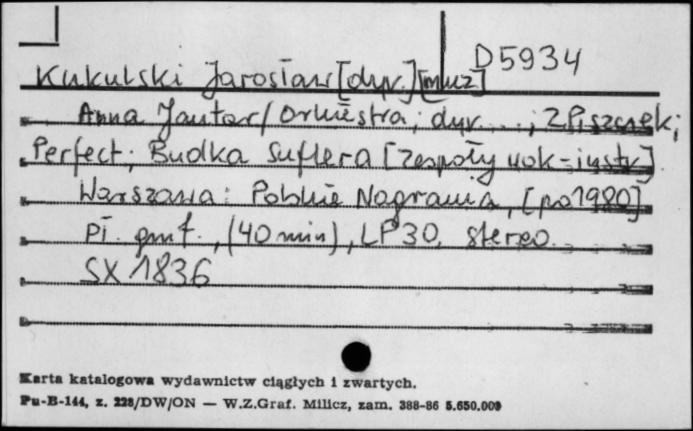 D5934
Kukulski Jarosław [dyr.] [muz]
Anna Jantar / Orkiestra; dyr. ...; Z Piszczek;
Perfect; Budka Suflera [zespoły wok-instr]
Warszawa: Polskie Nagrania, [po1980]
Pł. gmf., (40 min), LP 30, stereo.
SX 1836
Karta katalogowa wydawnictw ciągłych i zwartych.
Pu-B-144, z. 228/DW/ON — W.Z.Graf. Milicz, zam. 388-86 5.650.000